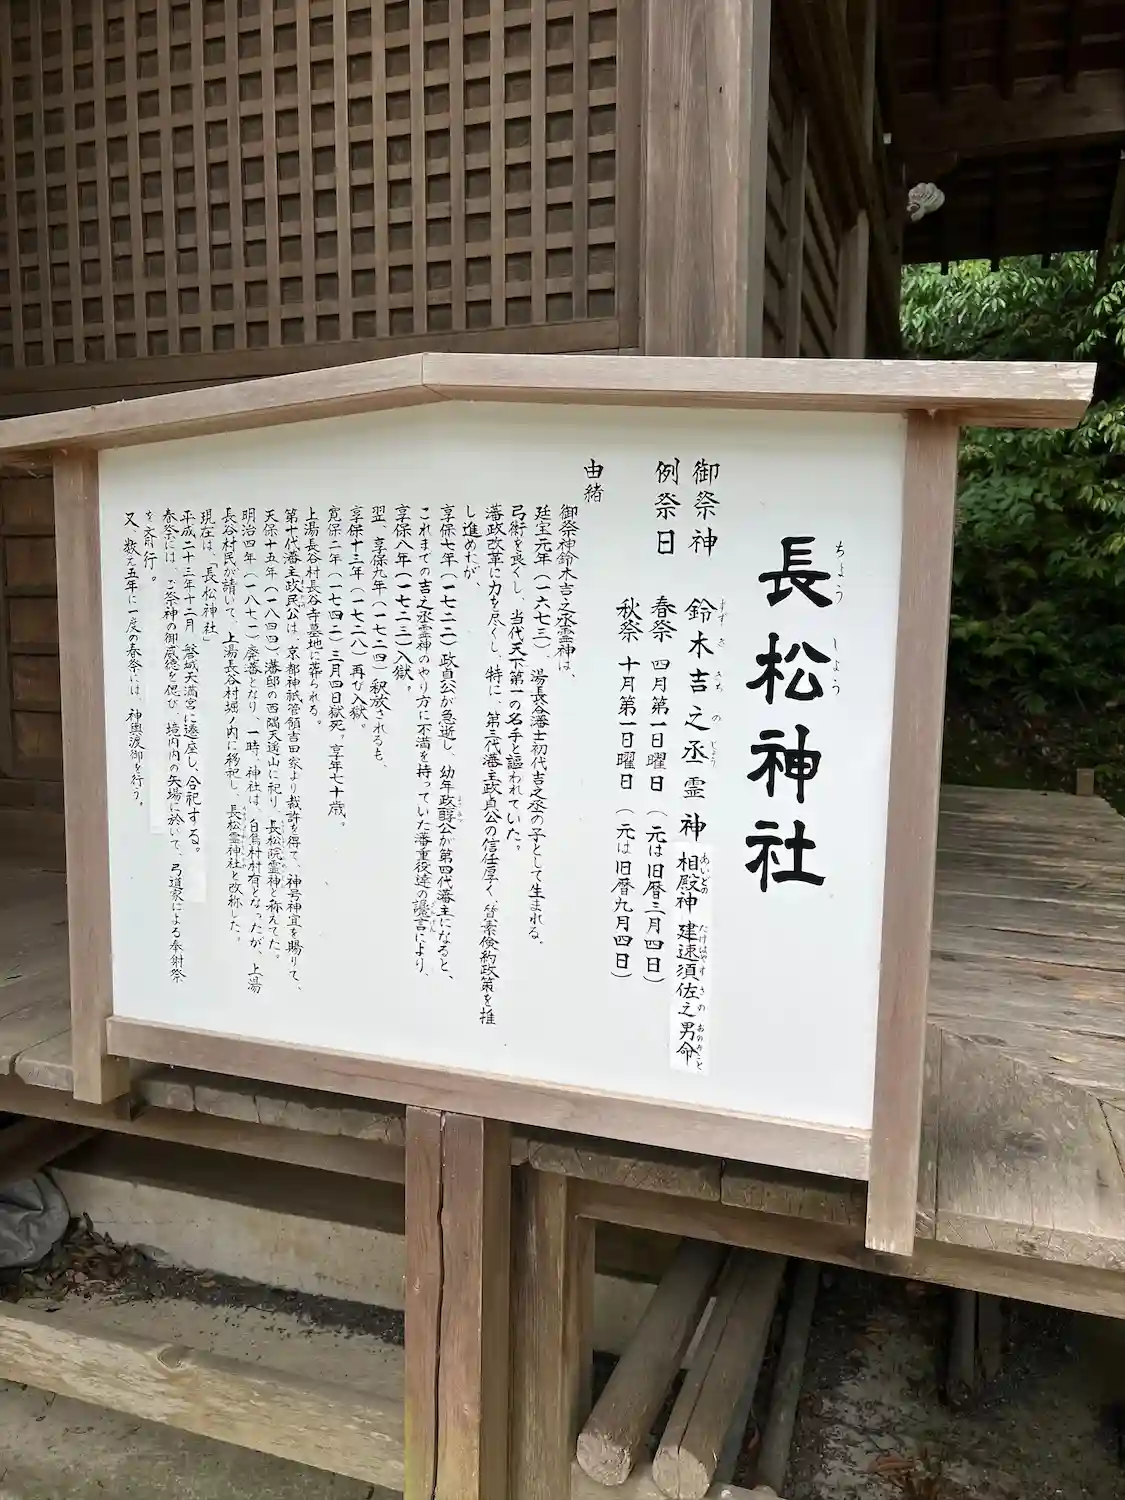 長松神社
ちょう しょう
御祭神 鈴木吉之丞霊神 相殿神 建速須佐之男命
すず き きち の じょう あいどの たけはやすさのおのみこと
例祭日 春祭 四月第一日曜日(元は旧暦三月四日)
秋祭 十月第一日曜日(元は旧暦九月四日)
由緒
御祭神鈴木吉之丞霊神は、
延宝元年(一六七三)、湯長谷藩士初代吉之丞の子として生まれる。
弓術を良くし、当代天下第一の名手と謳われていた。
藩政改革に力を尽くし、特に、第三代藩主政貞公の信任厚く、質素倹約政策を推
し進めたが、
享保七年(一七二二)政貞公が急逝し、幼年政醇公が第四代藩主になると、
これまでの吉之丞霊神のやり方に不満を持っていた藩重役達の讒言により、
享保八年(一七二三)入獄。
翌、享保九年(一七二四)釈放されるも、
享保十三年(一七二八)再び入獄。
寛保二年(一七四二)三月四日獄死。享年七十歳。
上湯長谷村長谷寺墓地に葬られる。
第十代藩主政民公は、京都神祇管領吉田家より裁許を得て、神号神宣を賜りて、
天保十五年(一八四四)、藩邸の西隅天遥山に祀り、長松院霊神と称えてた。
明治四年(一八七一)廃藩となり、一時、神社は、白鳥村村有となったが、上湯
長谷村民が請いて、上湯長谷村堀ノ内に移祀し、長松霊神社と改称した。
現在は、「長松神社
平成二十三年十二月 磐城天満宮に遷座し、合祀する。
春祭には、ご祭神の御威徳を偲び、境内内の矢場に於いて、弓道家による奉射祭
を斎行。
又、数え五年に一度の春祭には、神輿渡御を行う。